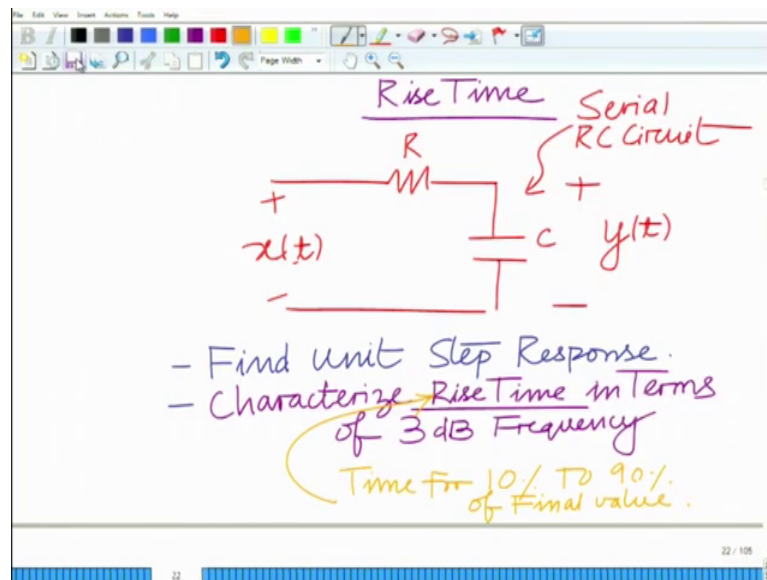 File Edit View Insert Actions Tools Help
B I
Page Width
Rise Time
Serial
RC Circuit
R
+
+
x(t)
C
y(t)
-
-
- Find Unit Step Response.
- Characterize Rise Time in Terms
of 3 dB Frequency
Time for 10% To 90%
of Final value.
22 / 105
22